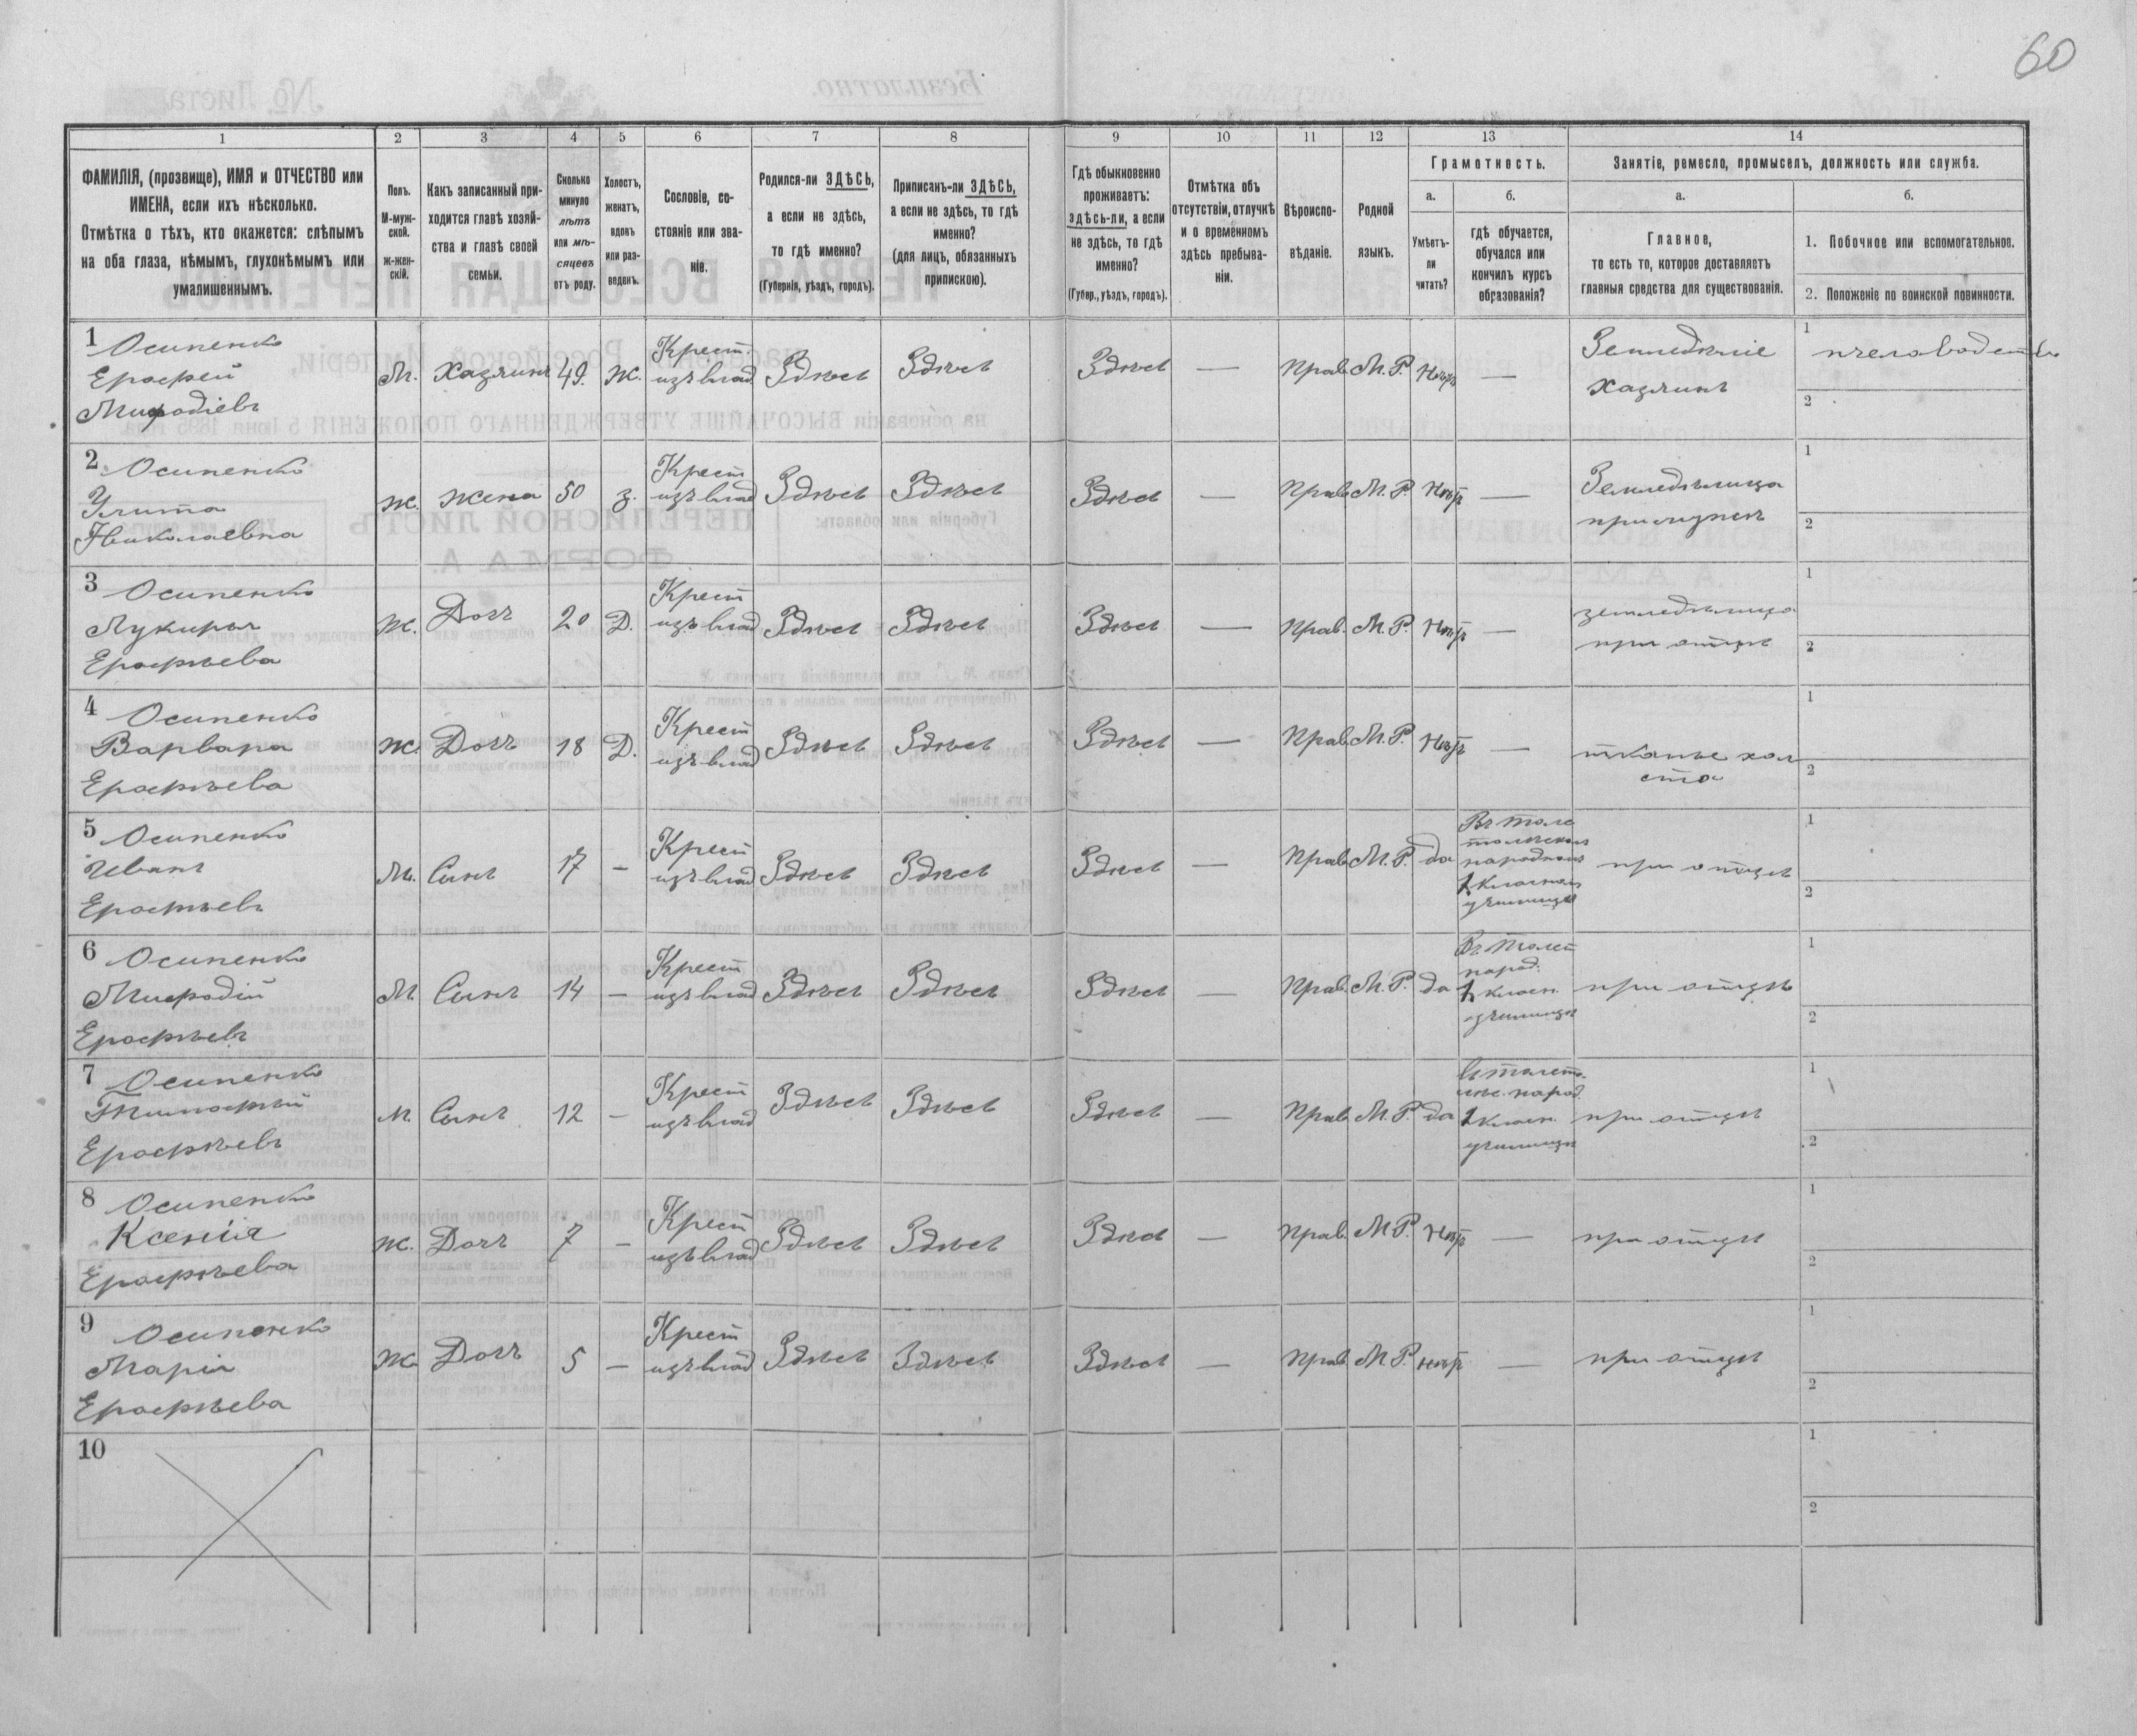 60
1 2 3 4 5 6 7 8 9 10 11 12 13 14
ФАМИЛІЯ, (прозвище), ИМЯ и ОТЧЕСТВО или
ИМЕНА, если ихъ нѣсколько.
Отмѣтка о тѣхъ, кто окажется: слѣпымъ
на оба глаза, нѣмымъ, глухонѣмымъ или
умалишеннымъ.
Полъ.
М-муж-
ской.
Ж-жен-
скій.
Какъ записанный при-
ходится главѣ хозяй-
ства и главѣ своей
семьи.
Сколько
минуло
лѣтъ
или мѣ-
сяцевъ
отъ роду.
Холостъ,
женатъ,
вдовъ
или раз-
веденъ.
Сословіе, со-
стояніе или зва-
ніе.
Родился-ли ЗДѢСЬ,
а если не здѣсь,
то гдѣ именно?
(Губернія, уѣздъ, городъ).
Приписанъ-ли ЗДѢСЬ,
а если не здѣсь, то гдѣ
именно?
(для лицъ, обязанныхъ
припискою).
Гдѣ обыкновенно
проживаетъ:
здѣсь-ли, а если
не здѣсь, то гдѣ
именно?
(Губер., уѣздъ, городъ).
Отмѣтка объ
отсутствіи, отлучкѣ
и о временномъ
здѣсь пребыва-
ніи.
Вѣроиспо-
вѣданіе.
Родной
языкъ.
Грамотность.
а.
Умѣетъ-
ли
читать?
б.
гдѣ обучается,
обучался или
кончилъ курсъ
образованія?
Занятіе, ремесло, промыселъ, должность или служба.
а.
Главное,
то есть то, которое доставляетъ
главныя средства для существованія.
б.
1. Побочное или вспомогательное.
2. Положеніе по воинской повинности.
1 Осипенко
Ерофей
Мифодіевъ
М. Хазяинъ 49. Ж. Крест. изъ влад. Здѣсь Здѣсь Здѣсь — Прав. М. Р. Нѣтъ — Земледѣліе
хазяинъ
1 пчеловодство
2
2 Осипенко
Улита
Николаевна
Ж. Жена 50 З. Крест изъ влад Здѣсь Здѣсь Здѣсь — Прав. М. Р. Нѣтъ — Земледѣлица
при мужѣ
1
2
3 Осипенко
Лукирья
Ерофѣева
Ж. Дочь 20 Д. Крест изъ влад Здѣсь Здѣсь Здѣсь — Прав. М. Р. Нѣтъ — земледѣлица
при отцѣ
1
2
4 Осипенко
Варвара
Ерофѣева
Ж. Дочь 18 Д. Крест изъ влад Здѣсь Здѣсь Здѣсь — Прав. М. Р. Нѣтъ — тканье хол
ста
1
2
5 Осипенко
Иванъ
Ерофѣевъ
М. Сынъ 17 — Крест изъ влад Здѣсь Здѣсь Здѣсь — Прав. М. Р. да
народномъ
1 класномъ
училищѣ
при отцѣ
1
2
6 Осипенко
Мифодій
Ерофѣевъ
М. Сынъ 14 — Крест изъ влад Здѣсь Здѣсь Здѣсь — Прав. М. Р. да
народ.
1 класн.
училищѣ
при отцѣ
1
2
7 Осипенко
Тимофѣй
Ерофѣевъ
М. Сынъ 12 — Крест изъ влад Здѣсь Здѣсь Здѣсь — Прав М. Р. да
народ.
1 класн.
училищѣ
при отцѣ
1
2
8 Осипенко
Ксенія
Ерофѣева
Ж. Дочь 7 — Крест изъ влад Здѣсь Здѣсь Здѣсь — Прав. М. Р. Нѣтъ — при отцѣ
1
2
9 Осипенко
Марія
Ерофѣева
Ж. Дочь 5 — Крест изъ влад Здѣсь Здѣсь Здѣсь — Прав. М. Р. нѣтъ — при отцѣ
1
2
10
1
2